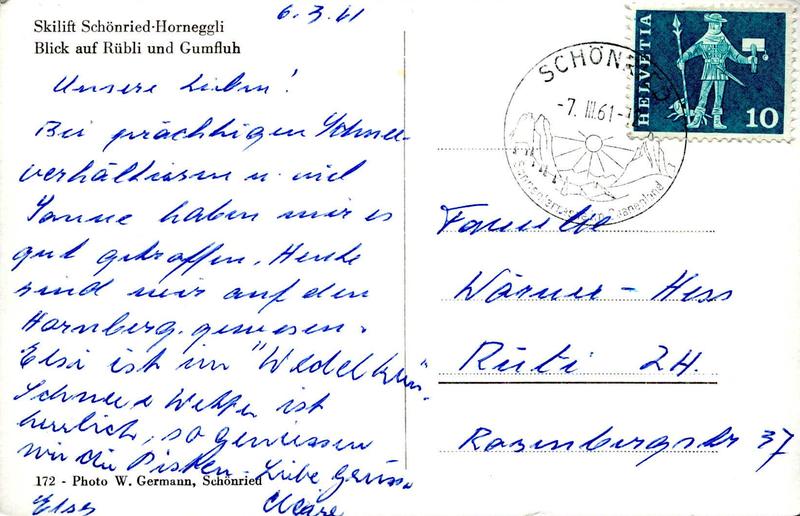 Skilift Schönried-Horneggli
Blick auf Rübli und Gumfluh
6.3.61
Unsere Lieben!
Bei prächtigen Schnee-
verhältissen u. viel
Sonne haben wir es
gut getroffen. Heute
sind wir auf den
Hornberg gewesen.
Elsi ist im "Wedelkurs".
Schnee & Wetter ist
herrlich, so geniessen
wir die Pisten. Liebe Grüsse
172 - Photo W. Germann, Schönried
SCHÖNRIED
-7. III 61-12
Sonnenterrasse Saanenland
HELVETIA
10
Familie
Hess
Rüti ZH.
Rosenbergstr 37